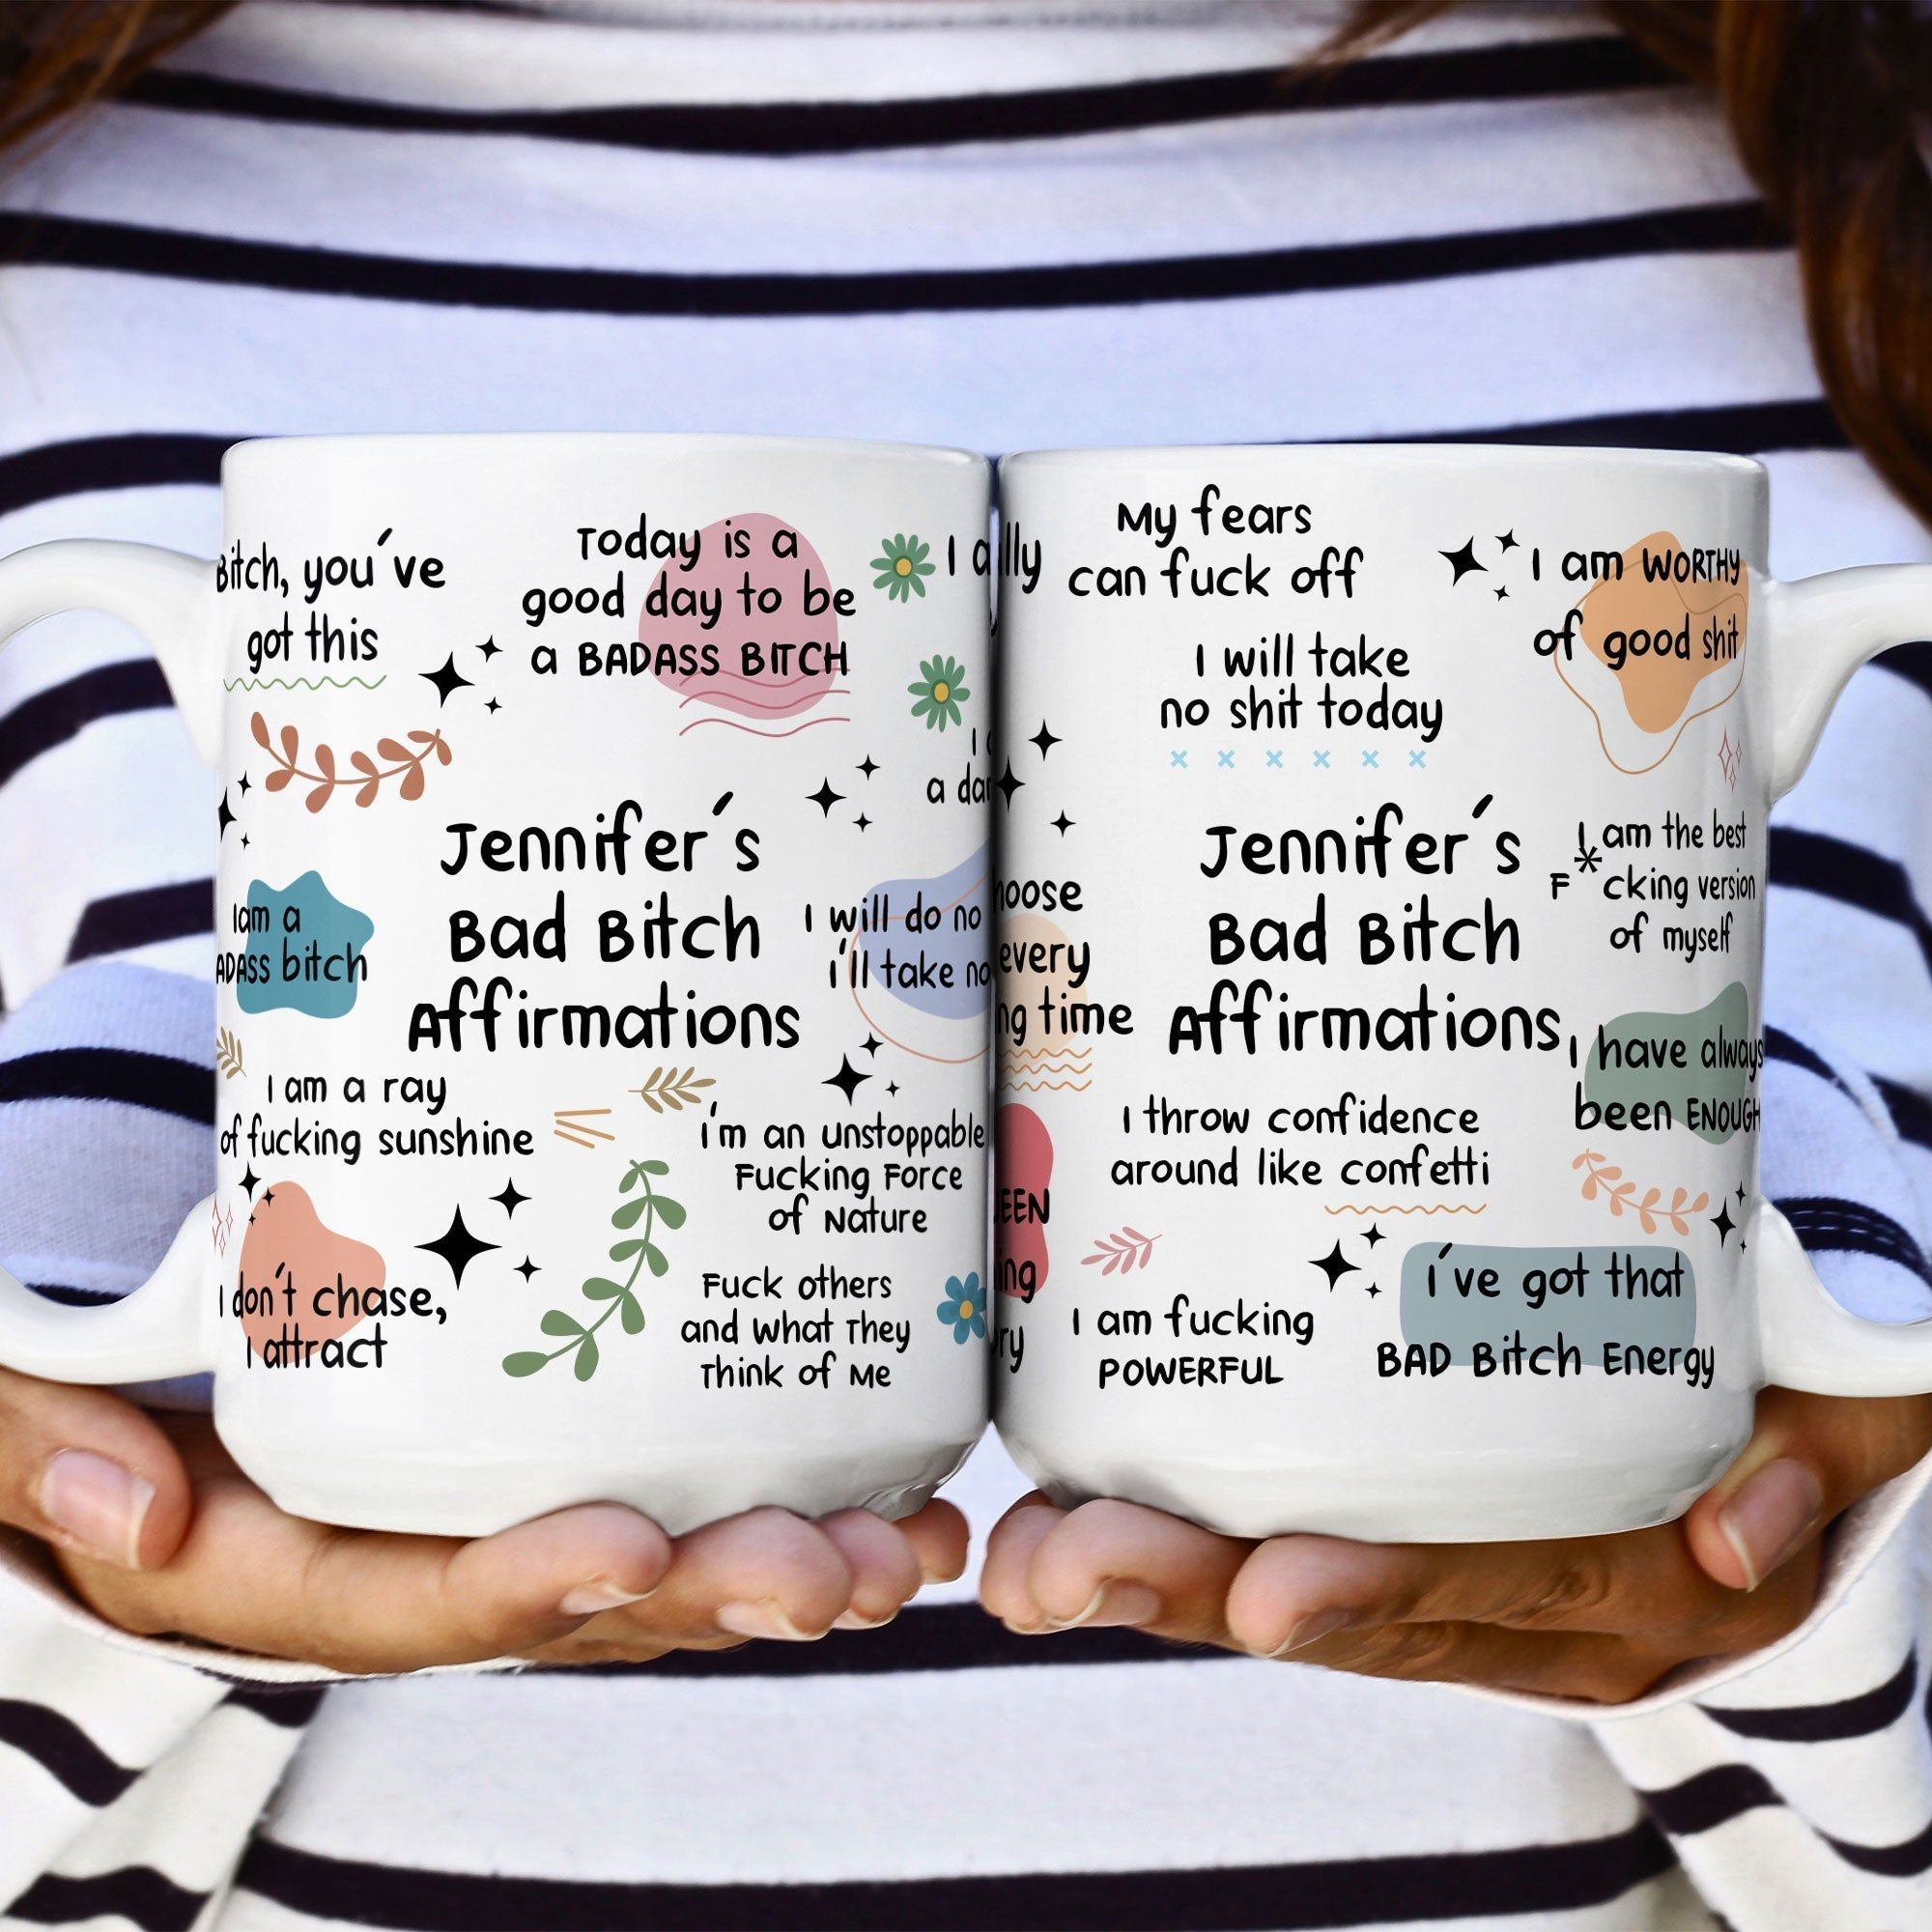 Bitch, you've
got this
Today is a
good day to be
a BADASS BITCH
I am a
BADASS bitch
Jennifer's
Bad Bitch
Affirmations
I will do no
i'll take no
I am a ray
of fucking sunshine
i'm an unstoppable
Fucking Force
of Nature
I don't chase,
I attract
Fuck others
and What They
Think of Me
My fears
can fuck off
I will take
no shit today
I am WORTHY
of good shit
every
time
Jennifer's
Bad Bitch
Affirmations
I am the best
F*cking version
of myself
I have always
been ENOUGH
I throw confidence
around like confetti
I am fucking
POWERFUL
i've got that
BAD Bitch Energy